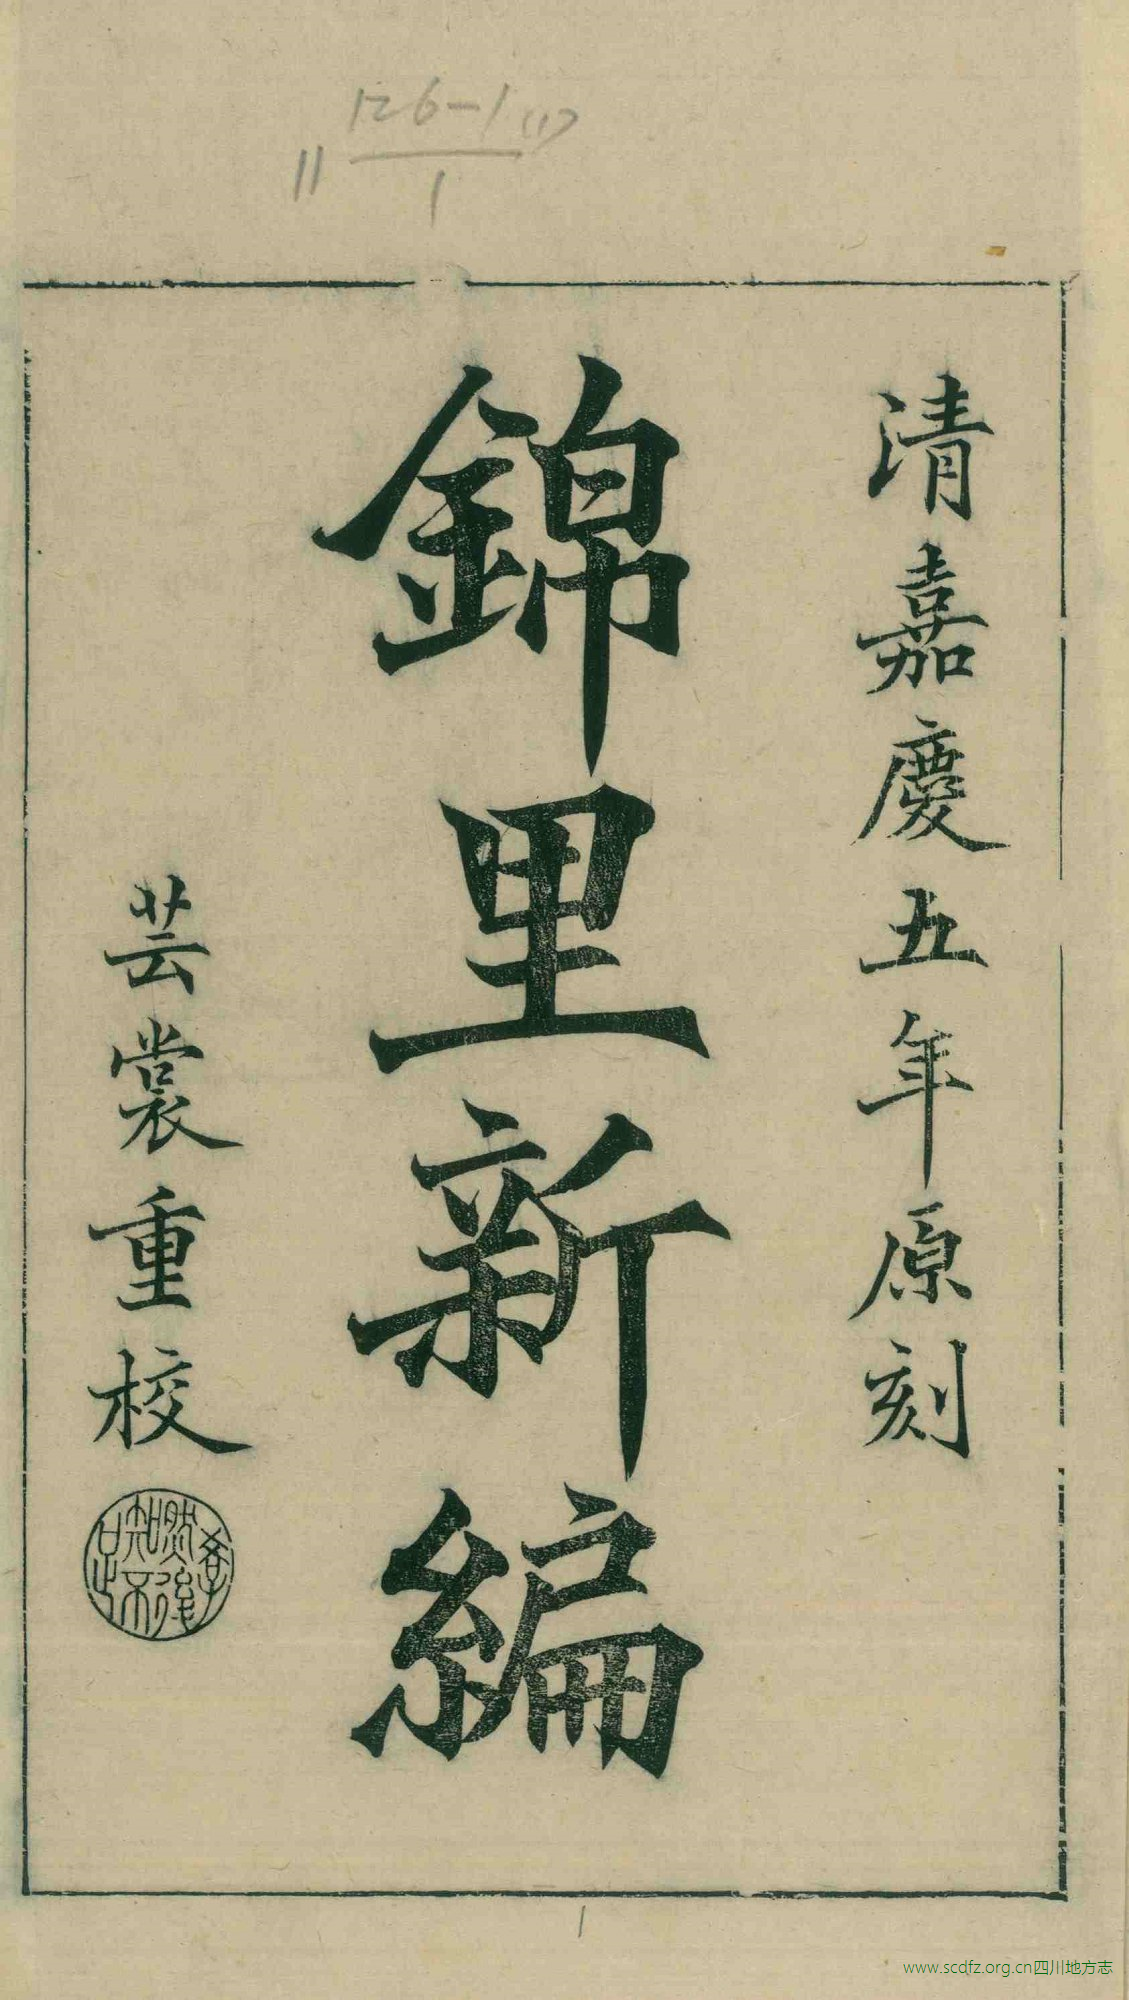 126-1(1)
11
1
清嘉慶五年原刻
錦里新編
芸裳重校
學然後知不足
1
www.scdfz.org.cn四川地方志